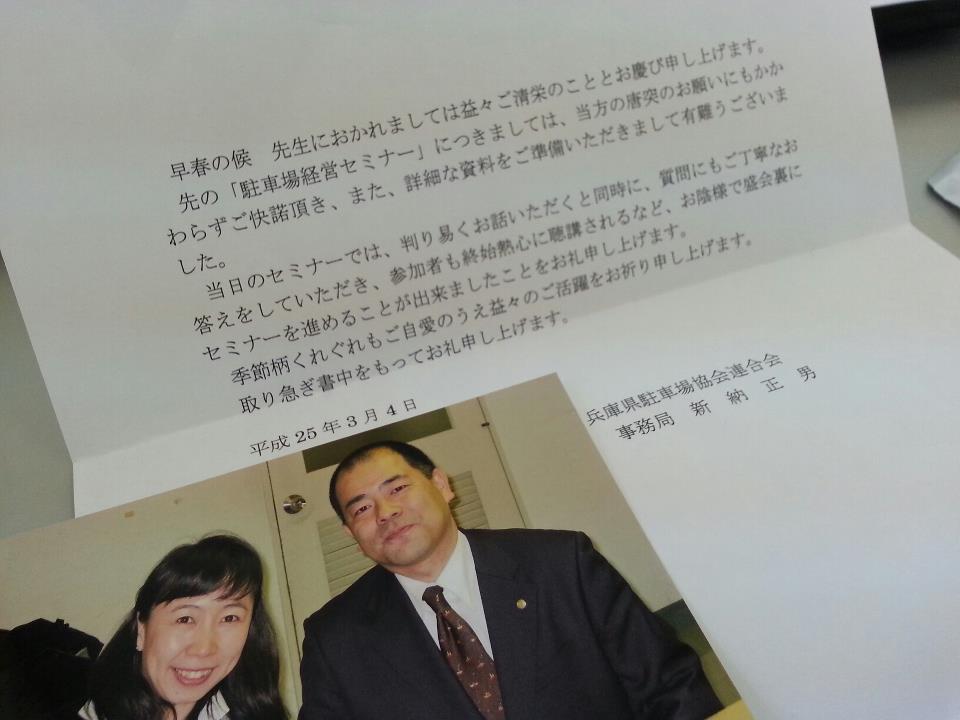 早春の候　先生におかれましては益々ご清栄のこととお慶び申し上げます。
先の「駐車場経営セミナー」につきましては、当方の唐突のお願いにもかか
わらずご快諾頂き、また、詳細な資料をご準備いただきまして有難うございま
した。
当日のセミナーでは、判り易くお話いただくと同時に、質問にもご丁寧なお
答えをしていただき、参加者も終始熱心に聴講されるなど、お陰様で盛会裏に
セミナーを進めることが出来ましたことをお礼申し上げます。
季節柄くれぐれもご自愛のうえ益々のご活躍をお祈り申し上げます。
取り急ぎ書中をもってお礼申し上げます。
平成 25 年 3 月 4 日
兵庫県駐車場協会連合会
事務局　新　納　正　男